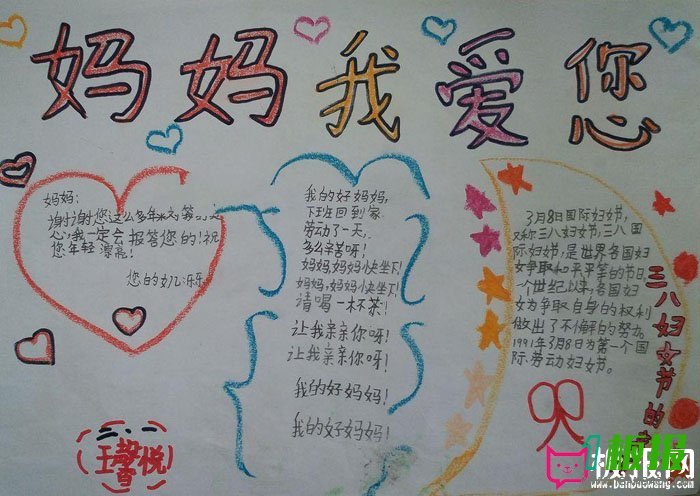 妈妈我爱您
妈妈:
谢谢您这么多年来对
心,我一定会报答您的!祝
您年轻漂亮!
您的女儿
我的好妈妈,
下班回到家
劳动了一天,
多么辛苦呀!
妈妈,妈妈快坐下!
妈妈,妈妈快坐下!
请喝一杯茶!
让我亲亲你呀!
让我亲亲你呀!
我的好妈妈!
我的好妈妈!
3月8日国际妇女节,
又称三八妇女节,三八国
际妇女节,是世界各国妇
女争取和平平等的节日
一个世纪以来,各国妇
女为争取自身的权利
做出了不懈的努力。
1991年3月8日为第一个国
际劳动妇女节。
三八妇女节的
二.一
王馨悦
板报
板报网
www.banbaowang.com